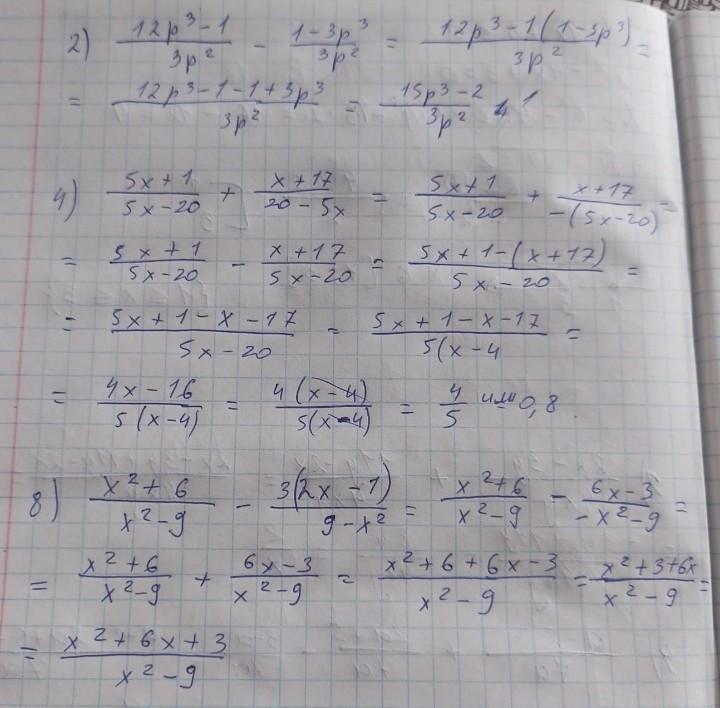 2) (12p³-1)/(3p²) - (1-3p³)/(3p²) = (12p³-1(1-3p³)/(3p²) =
= (12p³-1-1+3p³)/(3p²) = (15p³-2)/(3p²)
4) (5x+1)/(5x-20) + (x+17)/(20-5x) = (5x+1)/(5x-20) + (x+17)/(-(5x-20)) =
= (5x+1)/(5x-20) - (x+17)/(5x-20) = (5x+1-(x+17))/(5x-20) =
= (5x+1-x-17)/(5x-20) = (5x+1-x-17)/(5(x-4) =
= (4x-16)/(5(x-4)) = (4(x-4))/(5(x-4)) = 4/5 или 0,8
8) (x²+6)/(x²-9) - (3(2x-1))/(9-x²) = (x²+6)/(x²-9) - (6x-3)/(-x²-9) =
= (x²+6)/(x²-9) + (6x-3)/(x²-9) = (x²+6+6x-3)/(x²-9) = (x²+3+6x)/(x²-9) =
= (x²+6x+3)/(x²-9)